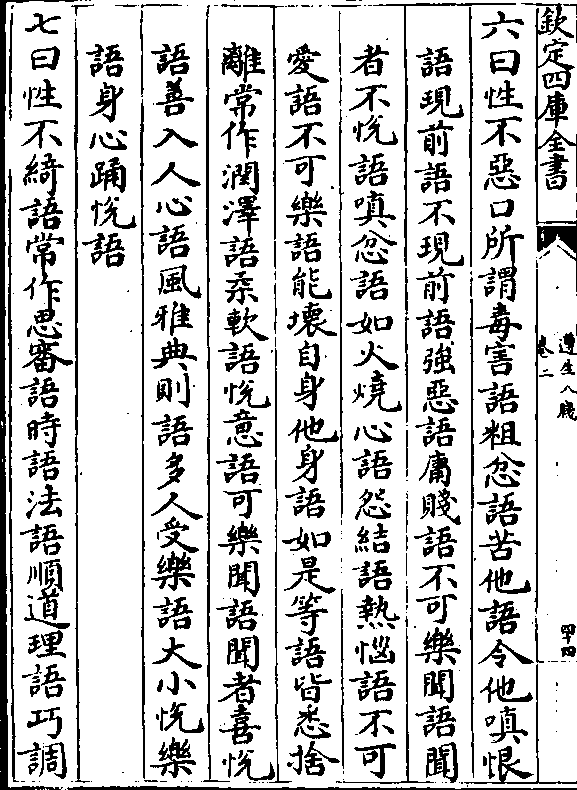 欽定四庫全書
遵生八牋
卷二
四十四
六曰性不惡口所謂毒害語粗忿語苦他語令他嗔恨
語現前語不現前語強惡語庸賤語不可樂聞語聞
者不悅語嗔忿語如火燒心語怨結語熱惱語不可
愛語不可樂語能壞自身他身語如是等語皆悉捨
離常作潤澤語柔軟語悅意語可樂聞語聞者喜悅
語善入人心語風雅典則語多人受樂語大小悅樂
語身心踊悅語
七曰性不綺語常作思審語時語法語順道理語巧調